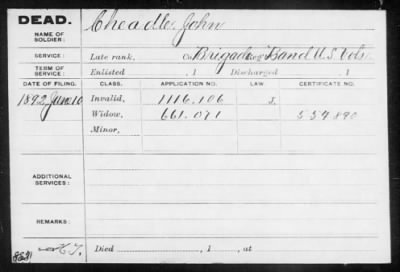 DEAD.
Cheadle, John
NAME OF SOLDIER:
SERVICE: Late rank, Co. Brigade Reg't Band U.S. Vols.
TERM OF SERVICE: Enlisted , 1 Discharged , 1
DATE OF FILING. CLASS. APPLICATION NO. LAW. CERTIFICATE NO.
1892, June 10 Invalid, 1116.106 J.
Widow, 661.071 554.890
Minor,
ADDITIONAL SERVICES:
REMARKS:
Died , 1 , at